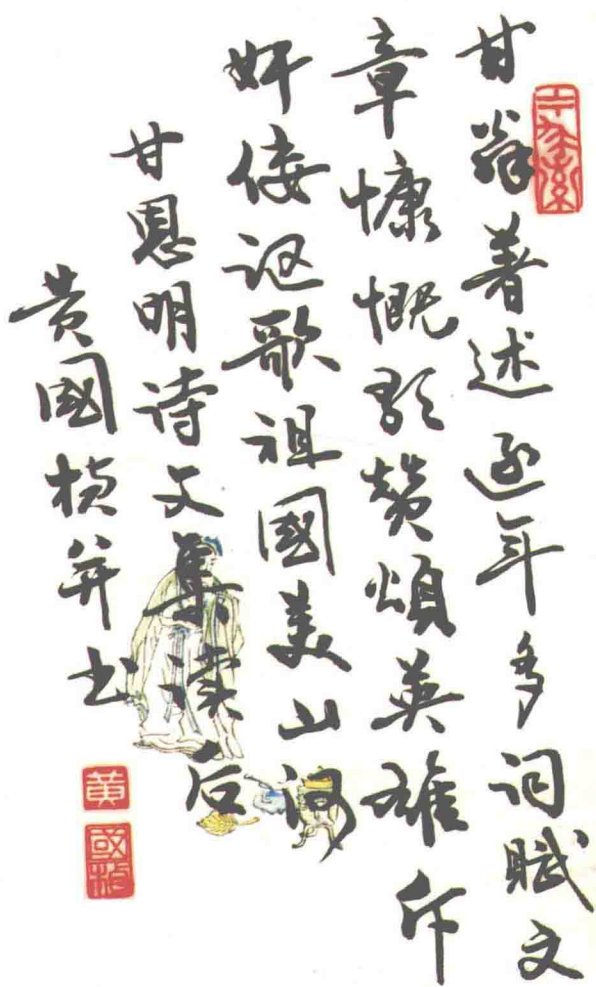 甘翁著述近年多词赋文
章慷慨歌赞颂英雄斥
奸佞讴歌祖國美山河
甘恩明诗文集读后
黄國桢并书
黄
國桢